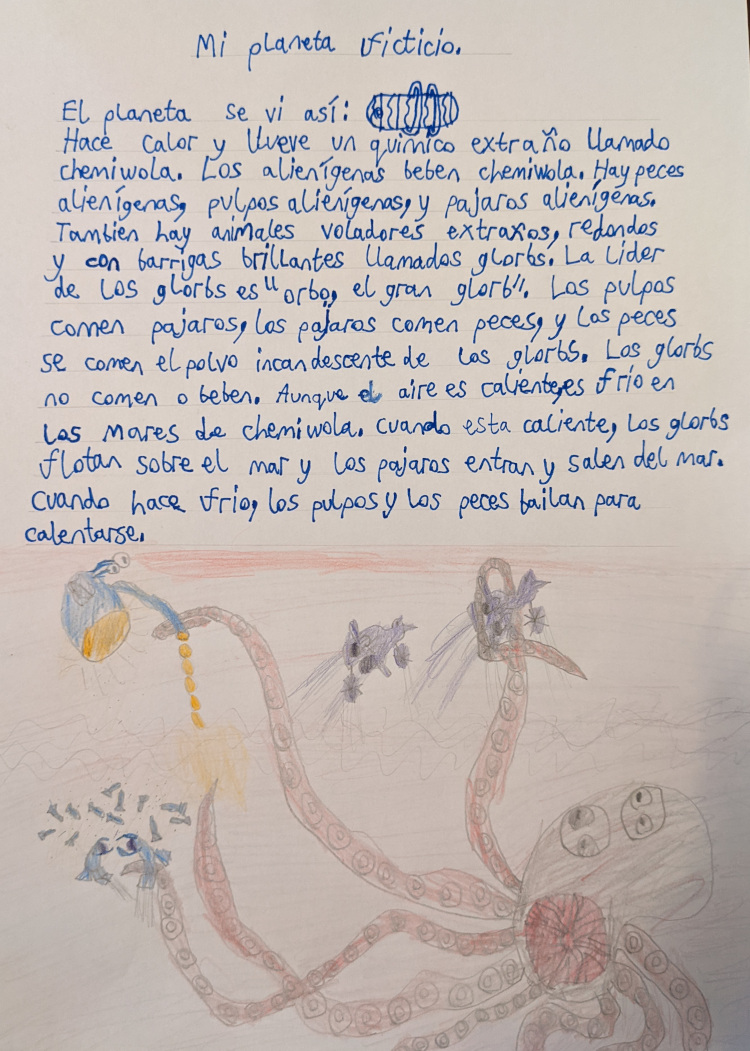 Mi planeta ficticio.
El planeta se vi así:
Hace calor y llueve un químico extraño llamado
chemiwola. Los alienígenas beben chemiwola. Hay peces
alienígenas, pulpos alienígenas, y pajaros alienígenas.
Tambien hay animales voladores extraños, redondos
y con barrigas brillantes llamados glorbs. La lider
de los glorbs es "orbo, el gran glorb". Los pulpos
comen pajaros, los pájaros comen peces, y los peces
se comen el polvo incandescente de los glorbs. Los glorbs
no comen o beben. Aunque el aire es caliente, es frío en
los mares de chemiwola. Cuando esta caliente, los glorbs
flotan sobre el mar y los pajaros entran y salen del mar.
Cuando hace frio, los pulpos y los peces bailan para
calentarse.